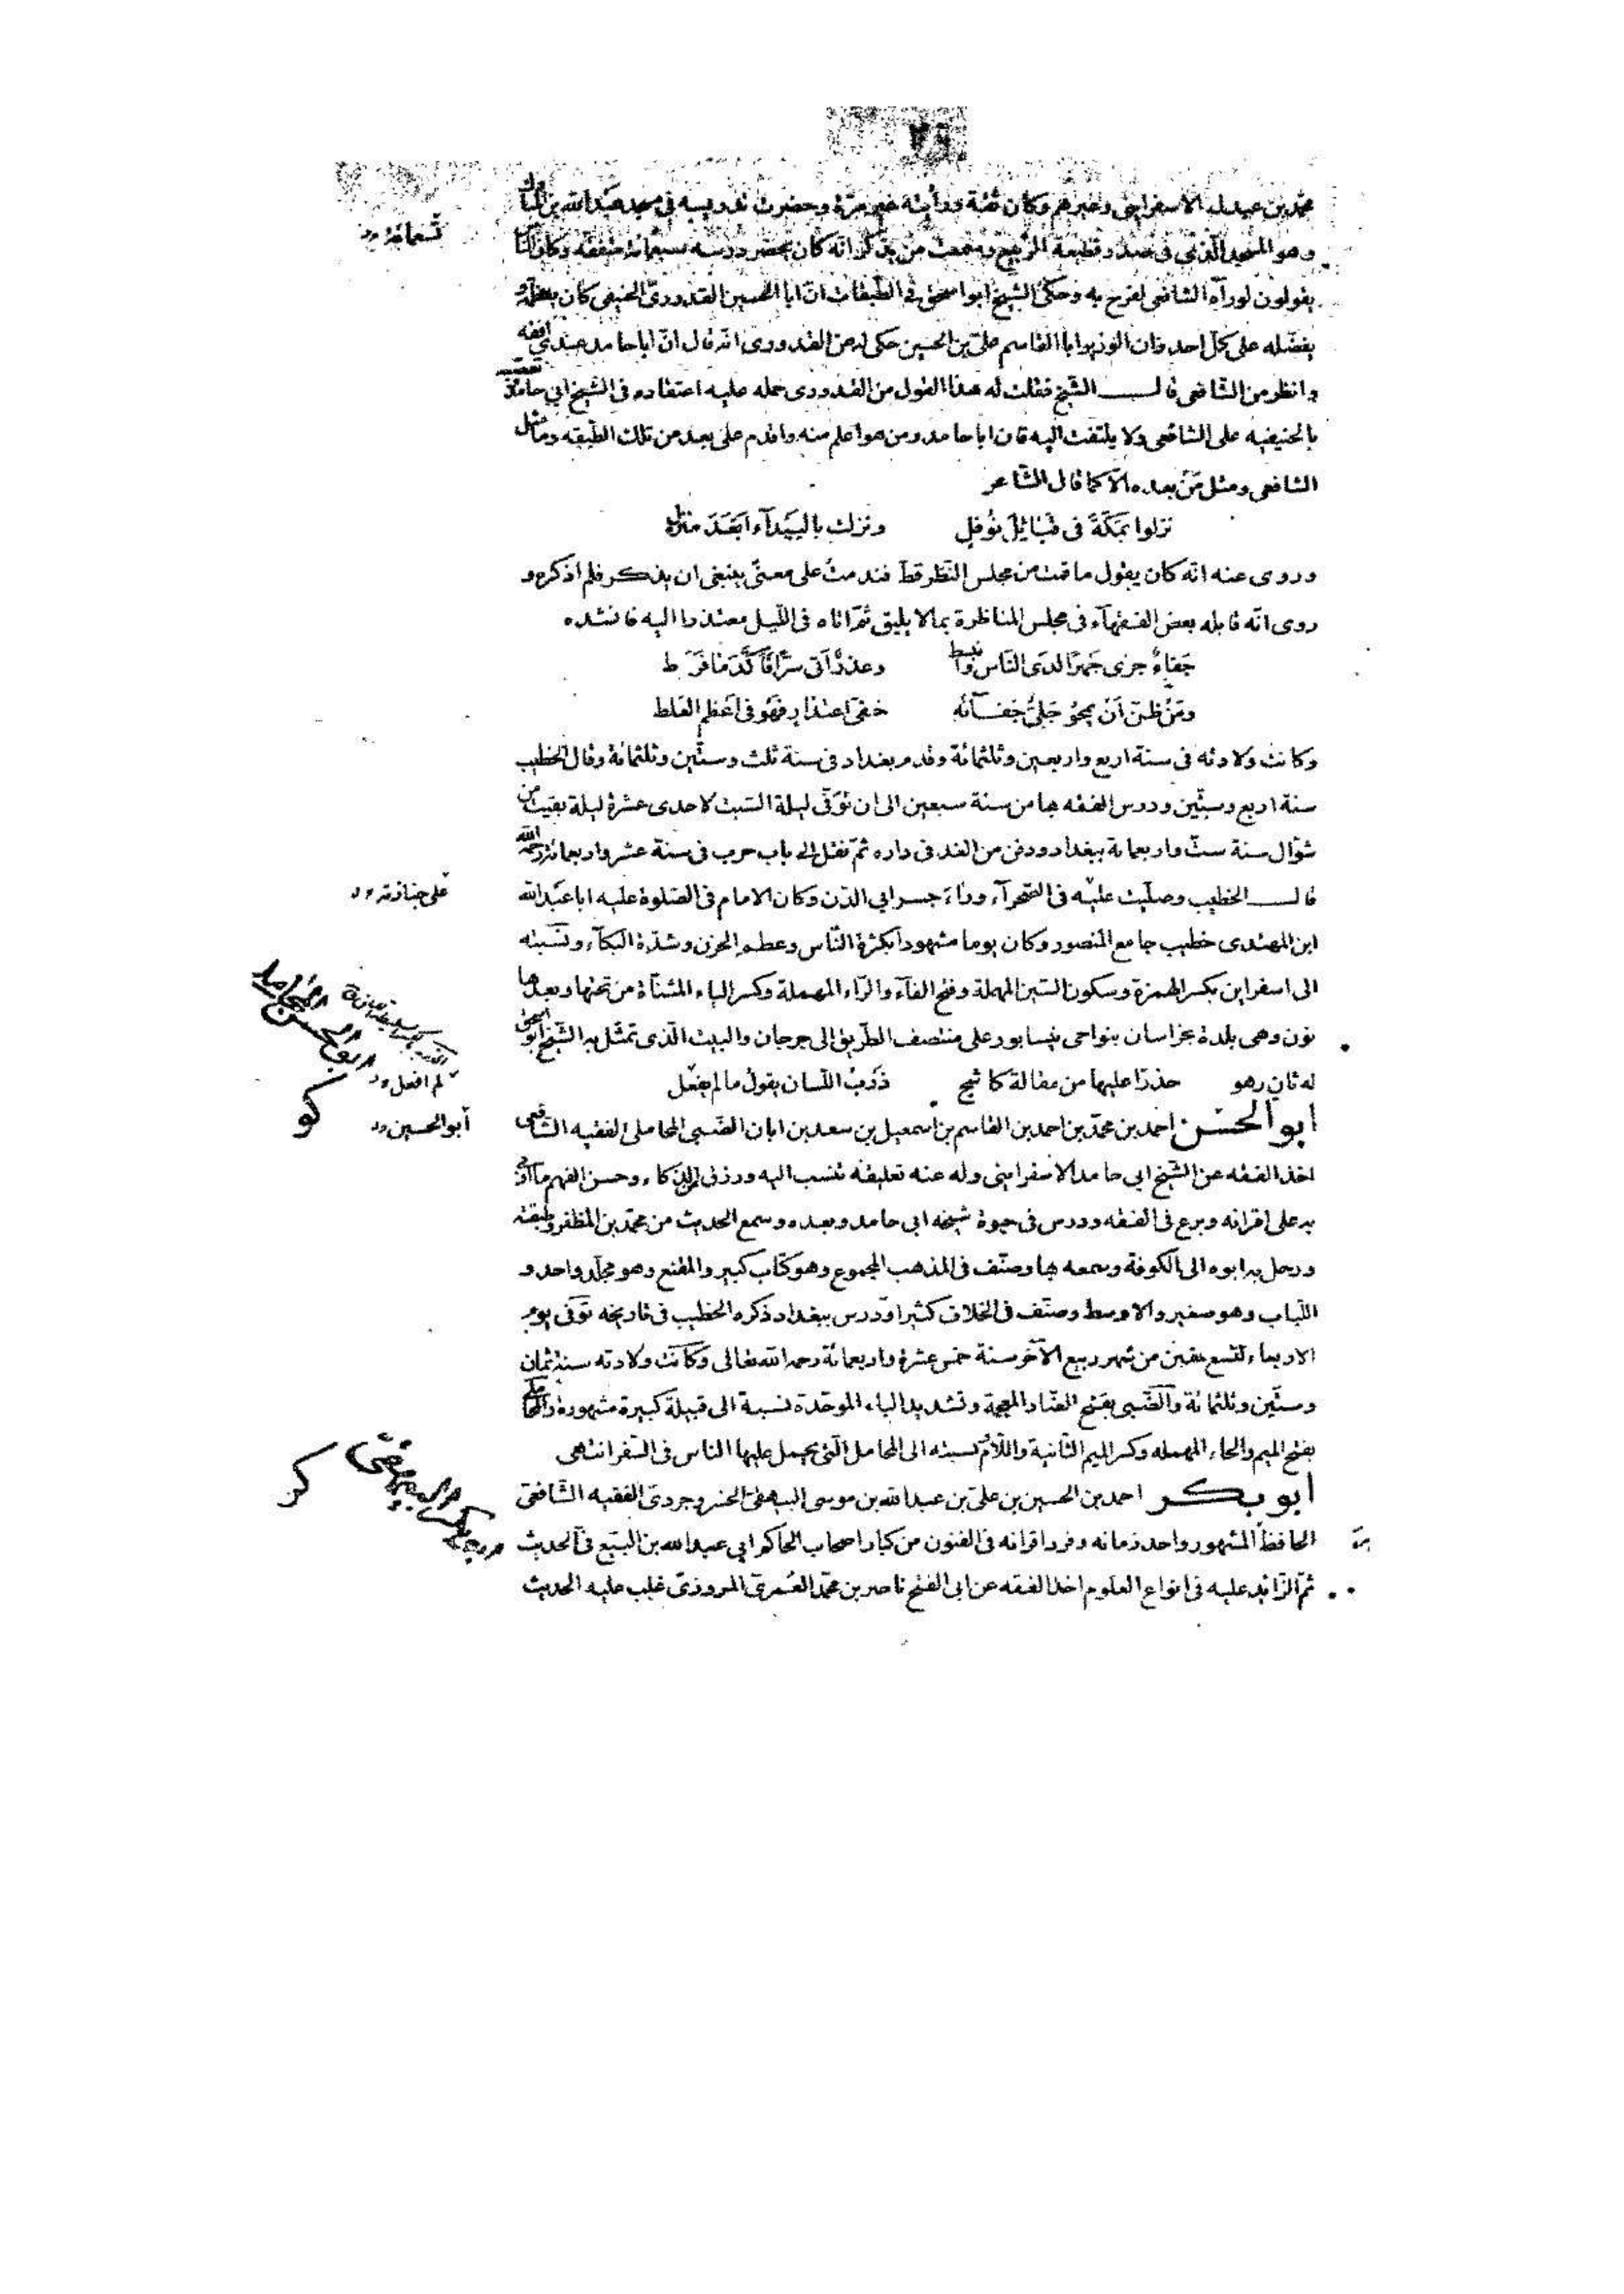 محمد بن عبدك الاسفراينى وغيرهم وكان ثقة ورأيته غير مرّة وحضرت تدريسه فى مسجد عبد الله بن المبارك
وهو المسجد الّذى فى صدر قطيعة الرّبيع وسمعت من يذكر انّه كان يحضر درسه سبعمائة متفقه وكان الناس
تسعمائة
يقولون لورآه الشافعى لفرح به وحكى الشيخ ابو اسحق فى الطّبقات انّ ابا الحسين القدورىّ الحنيفى كان يعظّمه و
يفضّله على كلّ احد وان الوزير ابا القاسم علىّ بن الحسين حكى له عن القدورى انّه قال انّ ابا حامد عندى افقه
وانظر من الشّافعى قال الشّيخ فقلت له هذا القول من القدورى حمله عليه اعتقاده فى الشّيخ ابي حامد وتعصّبه
بالحنيفيه على الشافعى ولا يلتفت اليه فان ابا حامد ومن هو اعلم منه واقدم على بعد من تلك الطّبقه وما مثل
الشافعى ومثل مَنْ بعده الّا كما قال الشّاعر
نزلوا بمَكّةَ فى قبَائِلَ نَوْفلٍ ونزلت بالبَيْدآء ابعَدَ منزل
وروى عنه انّه كان يقول ما قمت من مجلس النّظر قطّ فندمتُ على معنىً ينبغى ان يذكر فلم اذكره و
روى انّه قابله بعض الفقهآء فى مجلس المناظرة بمالا يليق ثمّ اتاه فى اللّيل معتذرا اليه فانشده
جَفاءٌ جرى جَهرًا لدى النّاس وانبسط وعذرٌ اتى سرًّا فاكّدَ ما فَرَط
ومَنْ ظنّ اَنْ يمحُوْ جَلىُّ جَفآئه خفىّ اعتذارٍ فهْوَ فى اَعْظم الغَلط
وكانت ولادته فى سنة اربع واربعين وثلثمائة وقدم بغداد فى سنة ثلث وستّين وثلثمائة وقال الخطيب
سنة اربع وستّين ودرس الفقه بها من سنة سبعين الى ان توَفّى ليلة السّبت لاحدى عشرة ليلة بقيت من
شوّال سنة ستّ واربعمائة ببغداد ودفن من الغد فى داره ثمّ نقل الى باب حرب فى سنة عشر واربعمائة رحمه الله
قال الخطيب وصلّيت عليه فى الصّحرآء وراءَ جسر ابى الدّن وكان الامام فى الصّلوة عليه ابا عبد الله
على جنازته
ابن المهتدى خطيب جامع المنصور وكان يوما مشهودا بكثرة النّاس وعظم الحزن وشدّة البكآء ونسبته
الى اسفراين بكسر الهمزة وسكون السّين المهملة وفتح الفآء والرّاء المهملة وكسر الياء المثنّاة من تحتها وبعدها
نون وهى بلدة بخراسان بنواحى نيسابور على منتصف الطّريق الى جرجان والبيت الّذى تمثّل به الشّيخ ابو اسحق
له ثانٍ وهو حذرًا عليها من مقالة كاشح ذَرْبُ اللّسان يقول مالم يفعَل
لم افعل
ابو الحسن احمد بن محمّد بن احمد بن القاسم بن اسمعيل بن سعد بن ابان الضّبى المحاملى الفقيه الشّافعى
أبو الحسين
ابو الحسن المحاملى
كو
اخذ الفقه عن الشّيخ ابي حامد الاسفراينى وله عنه تعليقه تنسب اليه ورزق من الذّكاء وحسن الفهم ما اربى
به على اقرانه وبرع فى الفقه ودرس فى حيوة شيخه ابى حامد وبعده وسمع الحديث من محمّد بن المظفر وطبقته
ورحل به ابوه الى الكوفة وسمعه بها وصنّف فى المذهب المجموع وهو كتاب كبير والمقنع وهو مجلّد واحد و
اللّباب وهو صغير والاوسط وصنّف فى الخلاف كثيرا ودرس ببغداد ذكره الخطيب فى تاريخه توَفّى يوم
الاربعاء لتسع بقين من شهر ربيع الآخر سنة خمس عشرة واربعمائة رحمه الله تعالى وكانت ولادته سنة ثمان
وستّين وثلثمائة والضّبى بفتح الضّاد المعجمة وتشديد الباء الموحّدة نسبة الى قبيلة كبيرة مشهورة والمحاملى
بفتح الميم والحاء المهمله وكسر الميم الثّانية واللّام نسبته الى المحامل الّتى يحمل عليها الناس فى السّفر انتهى
ابو بكر احمد بن الحسين بن علىّ بن عبد الله بن موسى البيهقىّ الخسروجردىّ الفقيه الشّافعىّ
ابو بكر البيهقىّ
كز
الحافظ المشهور واحد زمانه وفرد اقرانه فى الفنون من كبار اصحاب الحاكم ابي عبد الله بن البيّع فى الحديث
ثمّ الزّائد عليه فى انواع العلوم اخذ الفقه عن ابى الفتح ناصر بن محمّد العُمرىّ المروزىّ غلب عليه الحديث